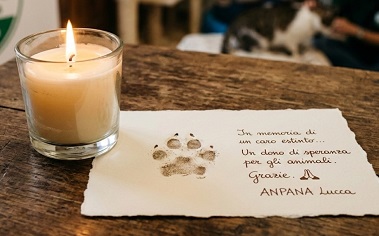 In memoria di
un caro estinto...
Un dono di speranza
per gli animali.
Grazie. 🙏
ANPANA Lucca